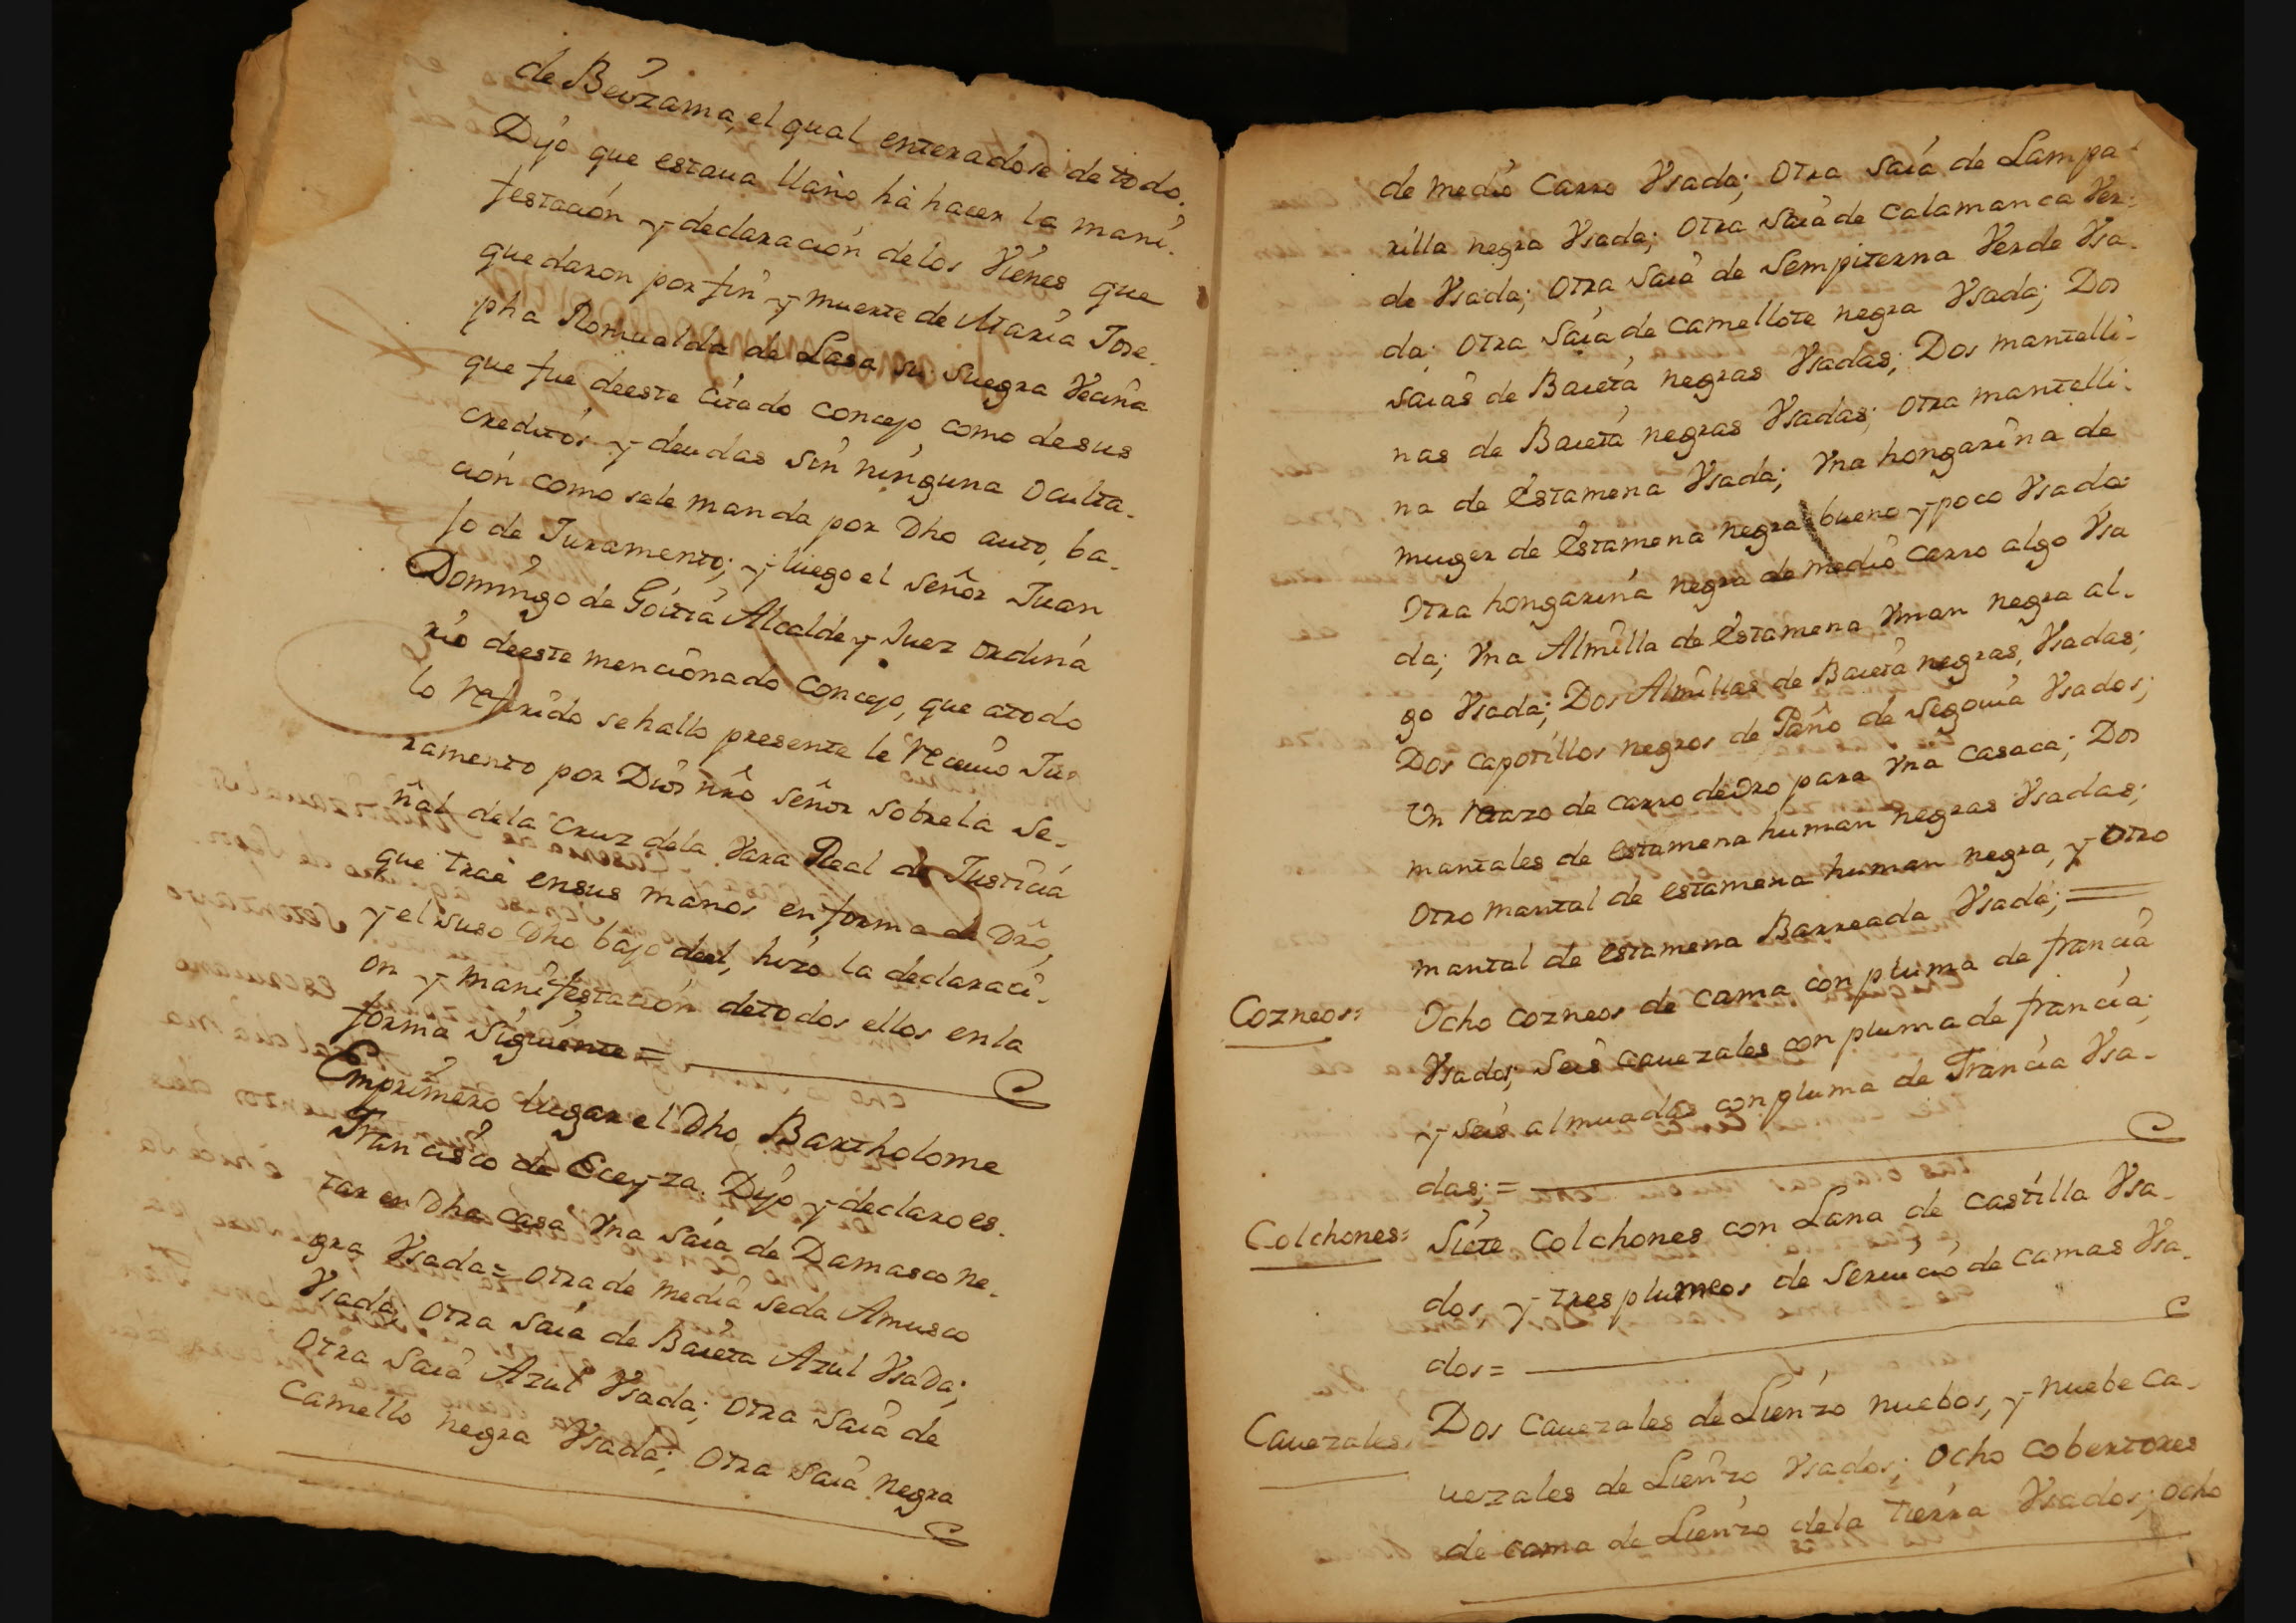 de Beizama, el qual enteradose de todo.
Dijo que estaua llano há hacer la mani-
festación y declaración delos Vienes que
quedaron por fin y muerte de María Jose-
pha Romualda de Lasa su Suegra Vecina
que fue deeste Citado Concejo, como desus
creditos y deudas sin ninguna oculta-
ción como sele manda por Dho auto, ba-
jo de Juramento; y luego el Señor Juan
Domingo de Goitia Alcalde y Juez ordina
rio deeste mencionado Concejo, que atodo
lo referido sehallo presente le reciuio Ju-
ramento por Dios nrô Señor sobrela Se-
ñal dela Cruz dela Vara Real de Justicia
que trae ensus manos en forma de Drô,
y el suso Dho bajo deel, hizo la declaraci-
on y manifestación detodos ellos enla
forma Siguiente =
Emprimero lugar el Dho Bartholome
Francisco de Eceyza. Dijo y declaro es-
tar en Dha casa Vna Saia de Damasco ne-
gra Vsada = otra de media seda Amusco
Vsada; otra Saia de Baieta Azul Vsada;
otra Saia Azul Vsada; otra Saia de
Camello negra Vsada; otra Saia negra
de medio Carro Vsada; otra Saia de Lampa-
rilla negra Vsada; otra Saia de Calamanca Ver-
de Vsada; otra Saia de Sempiterna Verde Vsa-
da; otra Saia de Camellote negra Vsada; Dos
Saias de Baieta negras Vsadas; Dos mantelli-
nas de Baieta negras Vsadas; otra mantelli-
na de Estamena Vsada; Vna hongarina de
muger de Estamena negra bueno y poco Vsada;
Otra hongarina negra de medio Carro algo Vsa
da; Vna Almilla de Estamena Vman negra al-
go Vsada; Dos Almillas de Baieta negras, Vsadas;
Dos capotillos negros de Paño de Segouia Vsados;
Un retazo de carro deoro para Vna Casaca; Dos
mantales de estamena human negras Vsadas;
Otro mantal de estamena human negra, y otro
mantal de estamena Barreada Vsada; =
Cozneos= Ocho cozneos de cama con pluma de francia
Vsados; Seis cauezales con pluma de francia;
y seis almuadas con pluma de Francia Vsa-
das; =
Colchones= Siete Colchones con Lana de castilla Vsa-
dos, y tres plumeos de Seruicio de camas Vsa-
dos =
Cauezales Dos Cauezales de Lienzo nuebos, y nuebe Ca-
uezales de Lienzo Vsados; ocho cobertores
de cama de Lienzo dela tierra Vsados; ocho